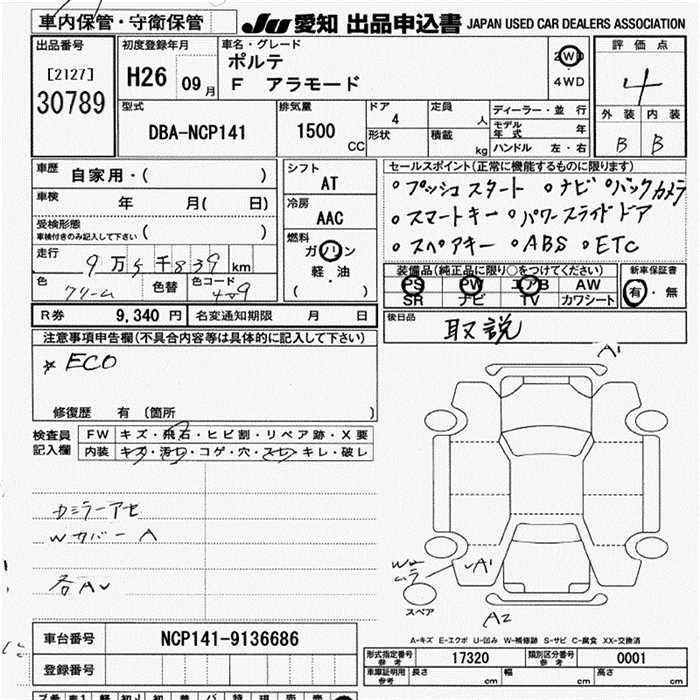 車内保管・守衛保管 JU 愛知 出品申込書 JAPAN USED CAR DEALERS ASSOCIATION
出品番号
[2127]
30789
初度登録年月
H26 09月
車名・グレード
ポルテ
F アラモード
2WD
・
4WD
評価点
4
外装 内装
B B
型式
DBA-NCP141
排気量
1500
CC
ドア
4
形状
定員
人
積載
kg
ディーラー・並行
モデル年式 年
ハンドル 左・右
車歴
自家用・( )
車検
年 月( 日)
受検形態
車検付きのみ記入して下さい ( )
走行
9万5千839 km
色
クリーム
色替
色コード
4Q9
シフト
AT
冷房
AAC
燃料
ガソリン
軽・油
( )
セールスポイント(正常に機能するものに限ります)
○プッシュスタート ○ナビ ○バックカメラ
○スマートキー ○パワースライドドア
○スペアキー ○ABS ○ETC
装備品(純正品に限り○をつけてください)
PS PW エアB AW
SR ナビ TV カワシート
新車保証書
有・無
R券 9,340円 名変通知期限 月 日
後日品
取説
注意事項申告欄(不具合内容等は具体的に記入して下さい)
☆ECO
修復歴 有 (箇所 )
検査員
記入欄
FW キズ・飛石・ヒビ割・リペア跡・X要
内装 キズ・汚れ・コゲ・穴・スレ・キレ・破レ
カミラーアセ
Wカバー A
各AU
A1
Wムラ
UA1
スペア
A2
A-キズ E-エクボ U-凹み W-補修跡 S-サビ C-腐食 XX-交換済
車台番号 NCP141-9136686
登録番号
形式指定番号
参考
17320
類別区分番号
参考
0001
車庫証明用
参考
長さ cm 幅 cm 高さ cm